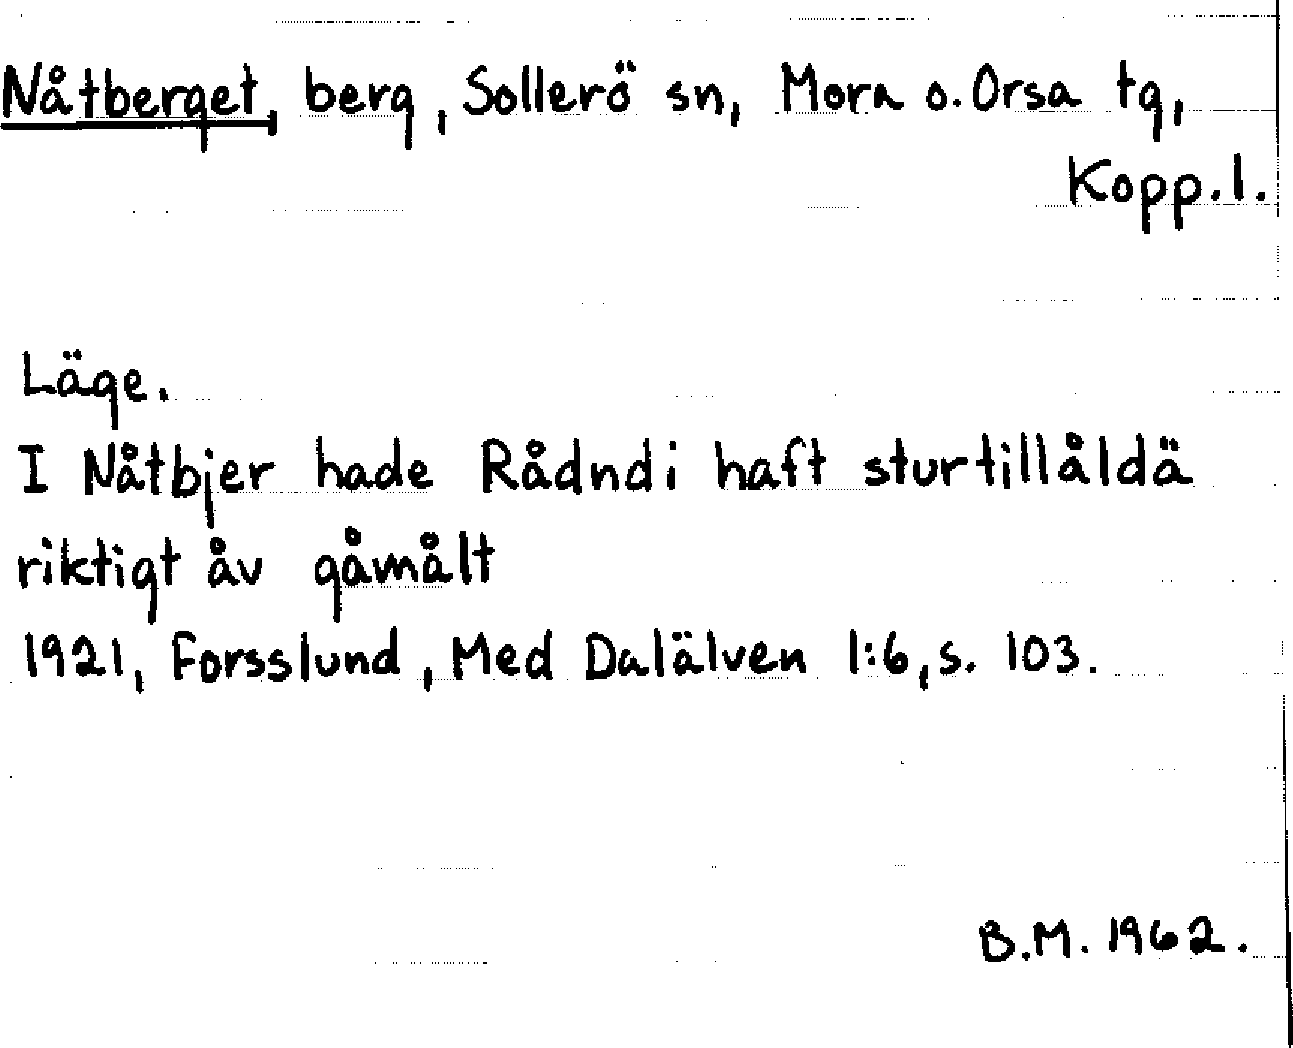 Nåtberget, berg, Sollerö sn, Mora o. Orsa tg,
Kopp. l.
Läge.
I Nåtbjer hade Rådndi haft sturtillåldä
riktigt åv gåmålt
1921, Forsslund, Med Dalälven 1:6, s. 103.
B.M. 1962.